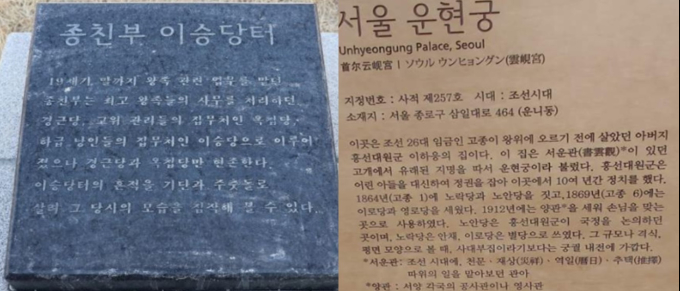 종친부 이승당터
19세기 말까지 왕족 관련 업무를 맡던
종친부는 최고 왕족들의 사무를 처리하던
경근당, 고위 관리들의 집무처인 옥첩당,
하급 낭인들의 집무처인 이승당으로 이루어
졌으나 경근당과 옥첩당만 현존한다.
이승당터의 흔적을 기단과 주춧돌로
살려 그 당시의 모습을 짐작해 볼 수 있다.
서울 운현궁
Unhyeongung Palace, Seoul
首尔云岘宫 | ソウル ウンヒョングン(雲峴宮)
지정번호 : 사적 제257호 시대 : 조선시대
소재지 : 서울 종로구 삼일대로 464 (운니동)
이곳은 조선 26대 임금인 고종이 왕위에 오르기 전에 살았던 아버지
흥선대원군 이하응의 집이다. 이 집은 서운관(書雲觀)*이 있던
고개에서 유래된 지명을 따서 운현궁이라 불렸다. 흥선대원군은
어린 아들을 대신하여 정권을 잡아 이곳에서 10여 년간 정치를 했다.
1864년(고종 1)에 노락당과 노안당을 짓고,1869년(고종 6)에는
이로당과 영로당을 세웠다. 1912년에는 양관*을 세워 손님을 맞는
곳으로 사용하였다. 노안당은 흥선대원군이 국정을 논의하던
곳이며, 노락당은 안채, 이로당은 별당으로 쓰였다. 그 규모나 격식,
평면 모양으로 볼 때, 사대부집이라기보다는 궁궐 내전에 가깝다.
*서운관: 조선 시대에, 천문·재상(災祥)·역일(曆日)·추택(推擇)
따위의 일을 맡아보던 관아
*양관 : 서양 각국의 공사관이나 영사관